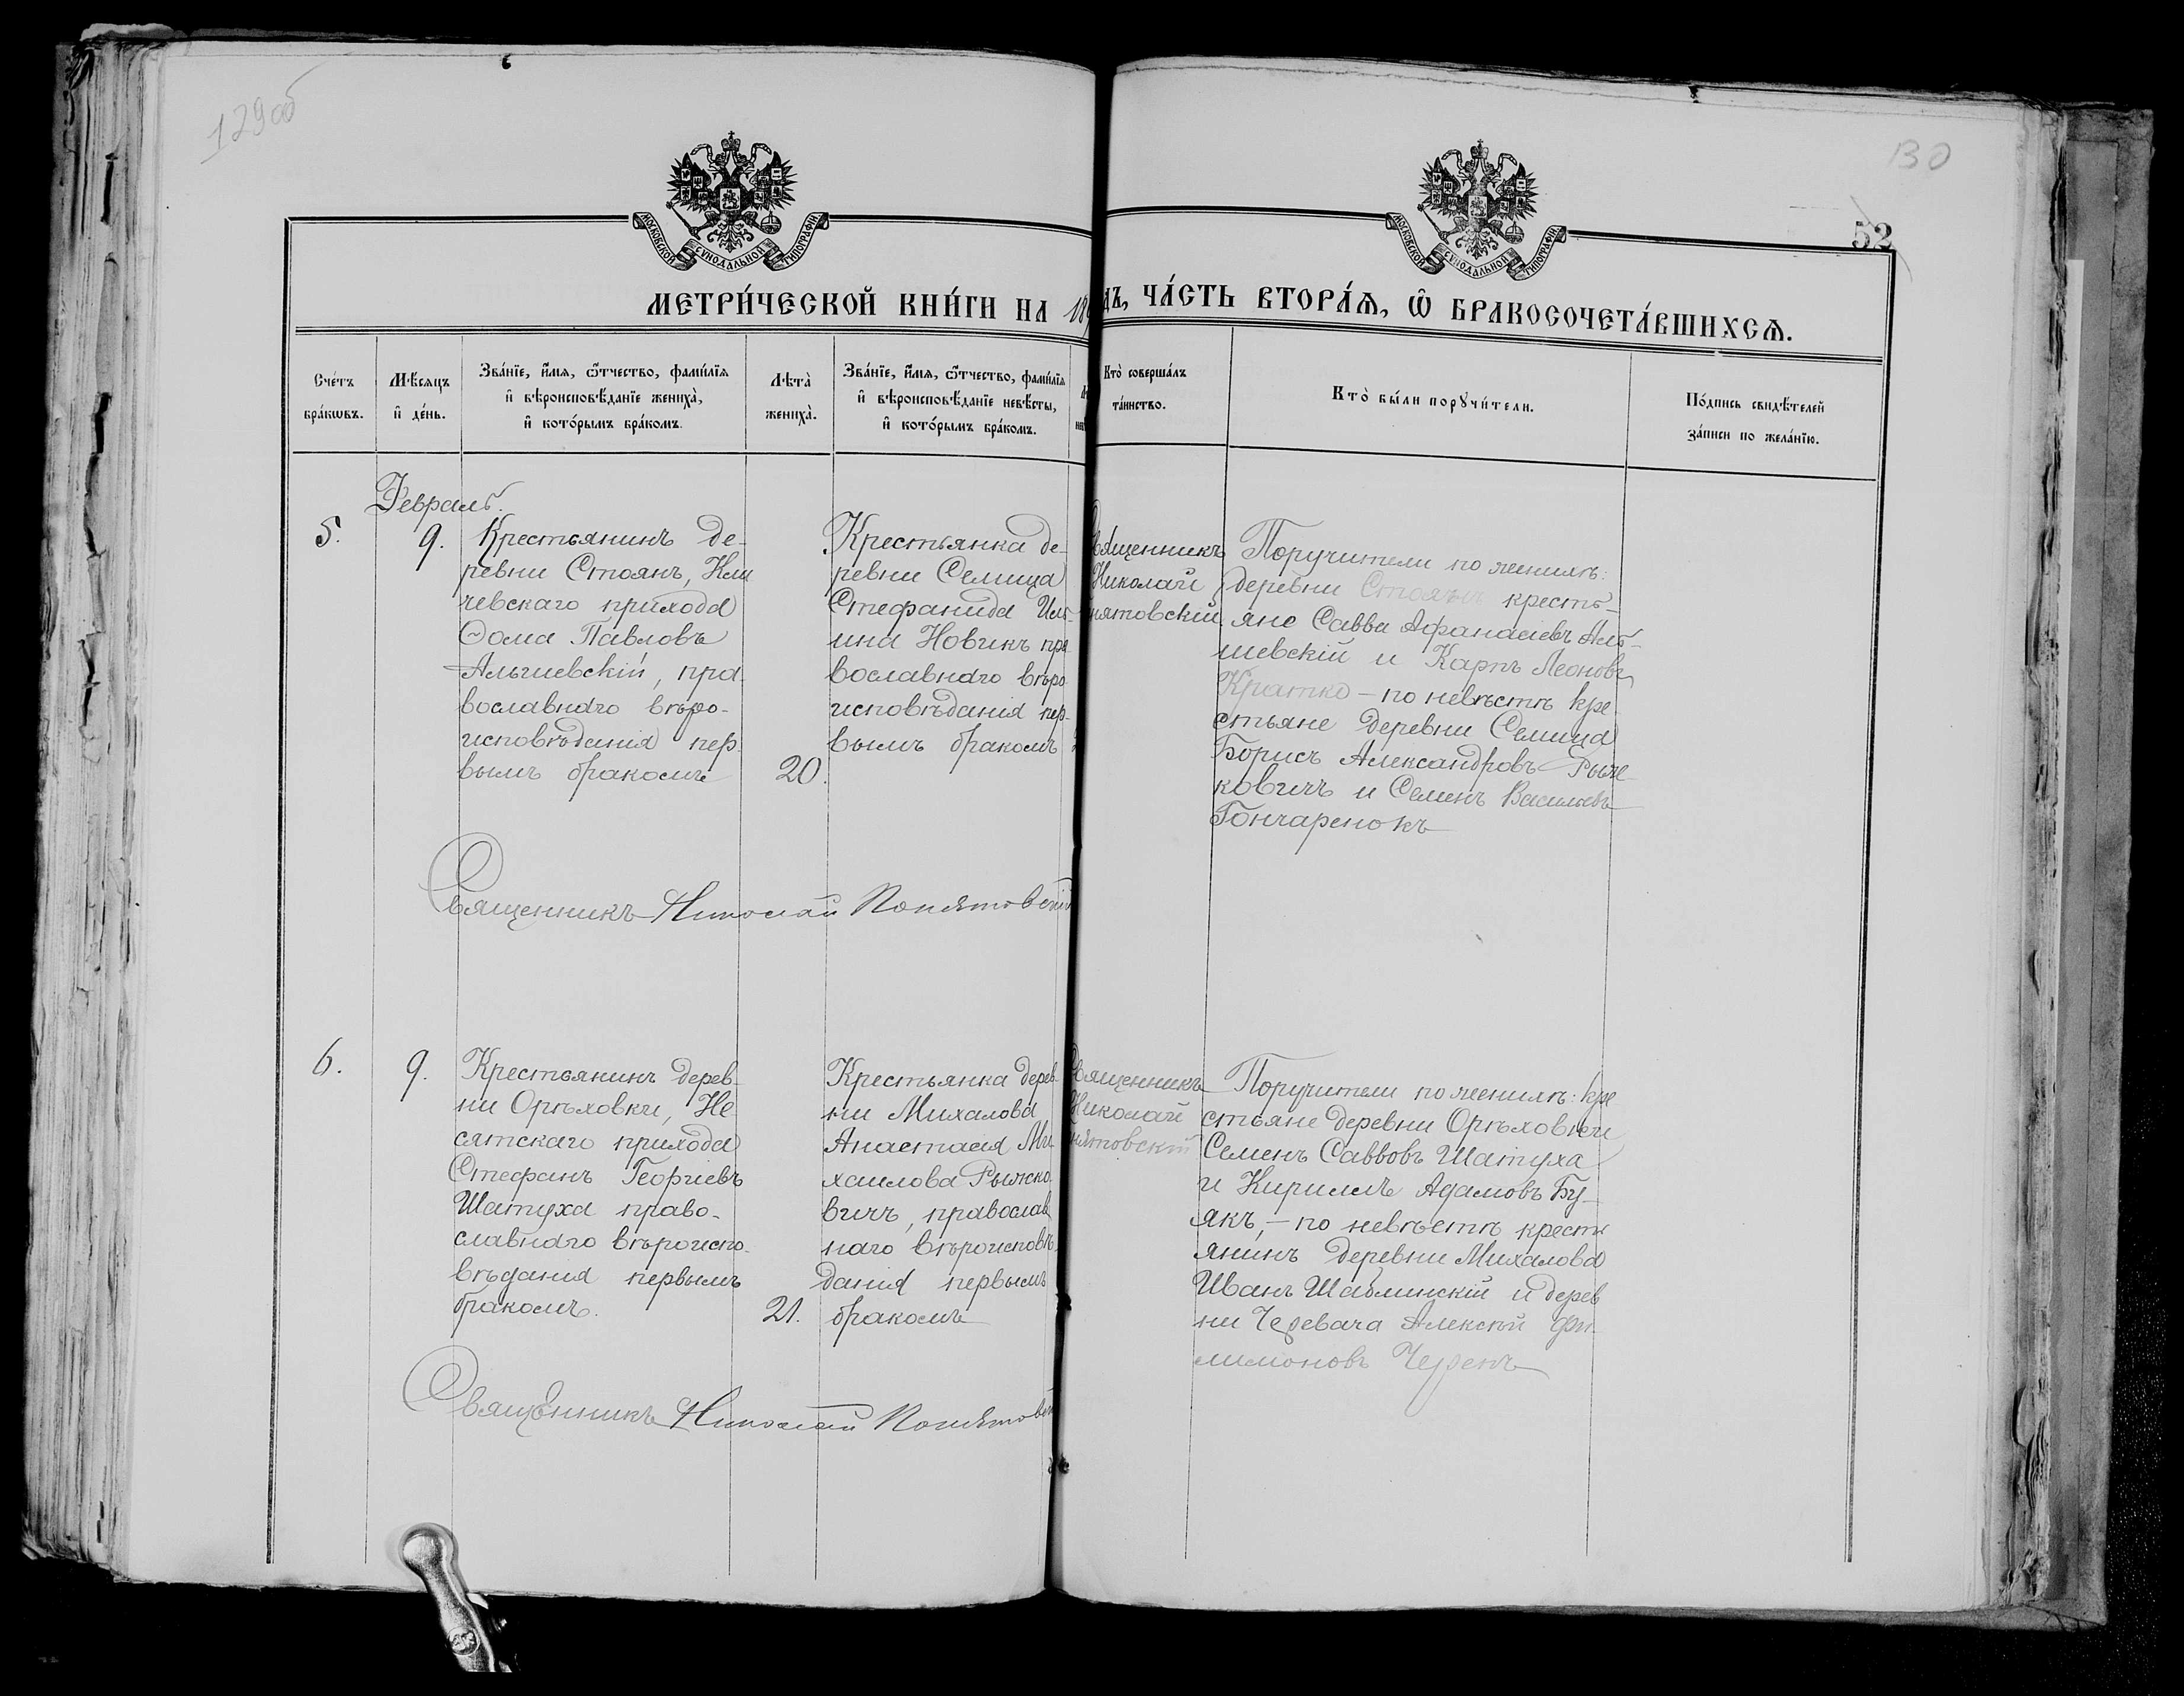 129об
130
52
МОСКОВСКОЙ СѴНОДАЛЬНОЙ ТИПОГРАФІИ
МОСКОВСКОЙ СѴНОДАЛЬНОЙ ТИПОГРАФІИ
МЕТРИ́ЧЕСКОЙ КНИ́ГИ НА 18
ДЪ, ЧА́СТЬ ВТОРА́Ѧ, Ѽ БРАКОСОЧЕТА́ВШИХСѦ.
Сче́тъ
бра́кѡвъ.
Мѣ́сяцъ
и҆ де́нь.
Зва́нїе, и҆́мя, ѻ҆́тчество, фами́лїя
и҆ вѣроисповѣ́данїе жениха̀,
и҆ кото́рымъ бра́комъ.
Лѣта̀
жениха̀.
Зва́нїе, и҆́мя, ѻ҆́тчество, фами́лїя
и҆ вѣроисповѣ́данїе невѣ́сты,
и҆ кото́рымъ бра́комъ.
Кто̀ соверша́лъ
та́инство.
Кто̀ бы́ли порꙋчи́тели.
По́дпись свидѣ́телей
за́писи по жела́нїю.
Февраль.
5.
9.
Крестьянинъ де-
ревни Стоянъ, Кли
чевскаго прихода
Ѳома Павловъ
Альшевскій, пра-
вославнаго вѣро-
исповѣданія пер-
вымъ бракомъ
20.
Крестьянка де-
ревни Селища
Стефанида Иль-
ина Новикъ пра
вославнаго вѣро
исповѣданія пер-
вымъ бракомъ
вященникъ
Николай
нятовскій.
Поручители по женихѣ:
деревни Стоянъ кресть-
яне Савва Афанасіевъ Аль-
шевскій и Карпъ Леоновъ
Кратко – по невѣстѣ кре
стьяне деревни Селища
Борисъ Александровъ Рыже-
ковичъ и Семенъ Васильевъ
Гончаренокъ
Священникъ Николай Понятовскій
6.
9.
Крестьянинъ дерев-
ни Орѣховки, Не
сятскаго прихода
Стефанъ Георгіевъ
Шатуха право-
славнаго вѣроиспо-
вѣданія первымъ
бракомъ.
21.
Крестьянка дерев-
ни Михалова
Анастасія Ми
хаилова Рыжко-
вичъ, православ
наго вѣроисповѣ-
данія первымъ
бракомъ
Священникъ
Николай
нятовскій
Поручители по женихѣ: кре
стьяне деревни Орѣховки
Семенъ Саввовъ Шатуха
и Кириллъ Адамовъ Бу-
якъ, – по невѣстѣ кресть
янинъ деревни Михалова
Иванъ Шаблинскій и дерев
ни Черевача Алексѣй Фи-
лимоновъ Черенъ
Священникъ Николай Понятовск